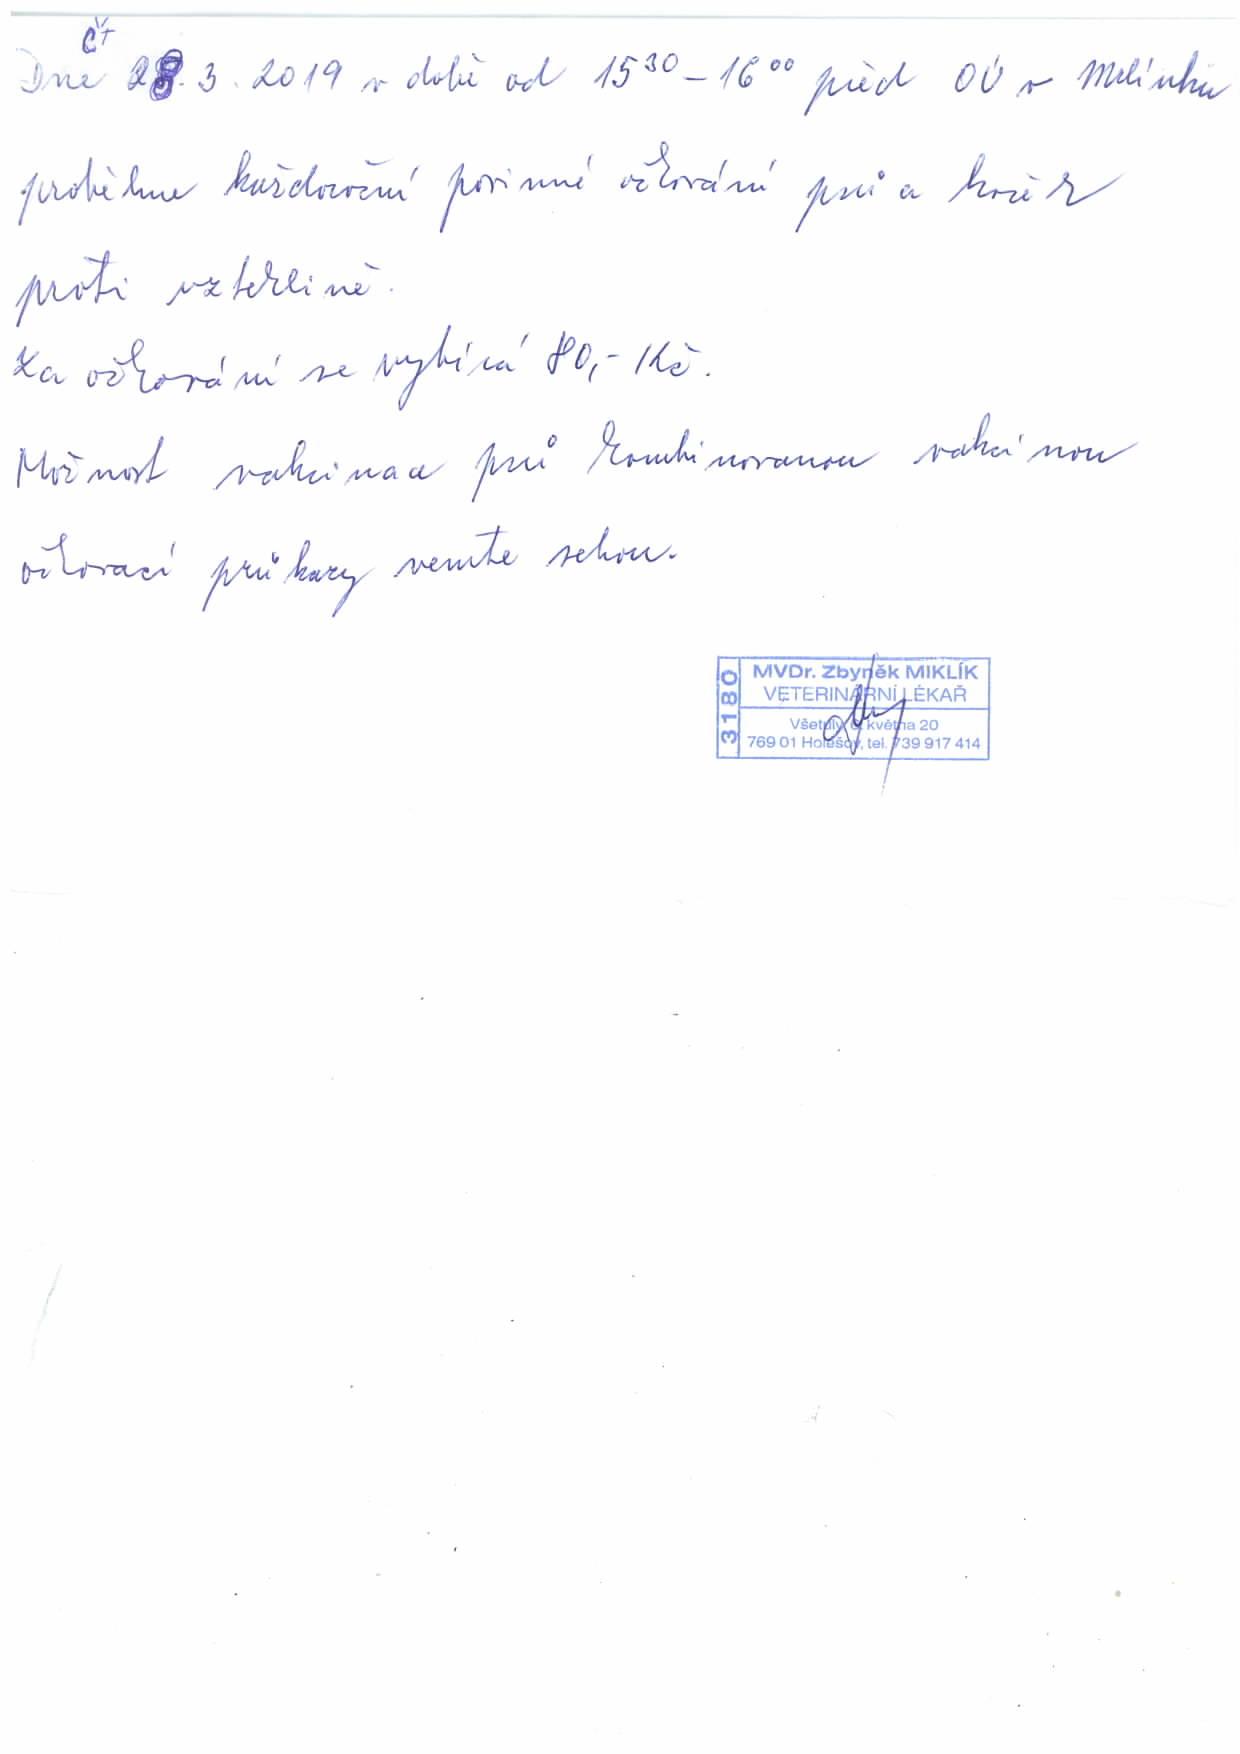 čt
Dne 28. 3. 2019 v době od 15³⁰ – 16⁰⁰ před OÚ v
proběhne každoroční povinné očkování psů a koček
proti vzteklině.
Za očkování se vybírá 80,- Kč.
Možnost vakcinace psů kombinovanou vakcínou
očkovací průkazy vemte sebou.
3180
MVDr. Zbyněk MIKLÍK
VETERINÁRNÍ LÉKAŘ
Všetuly, 6. května 20
769 01 Holešov, tel. 739 917 414